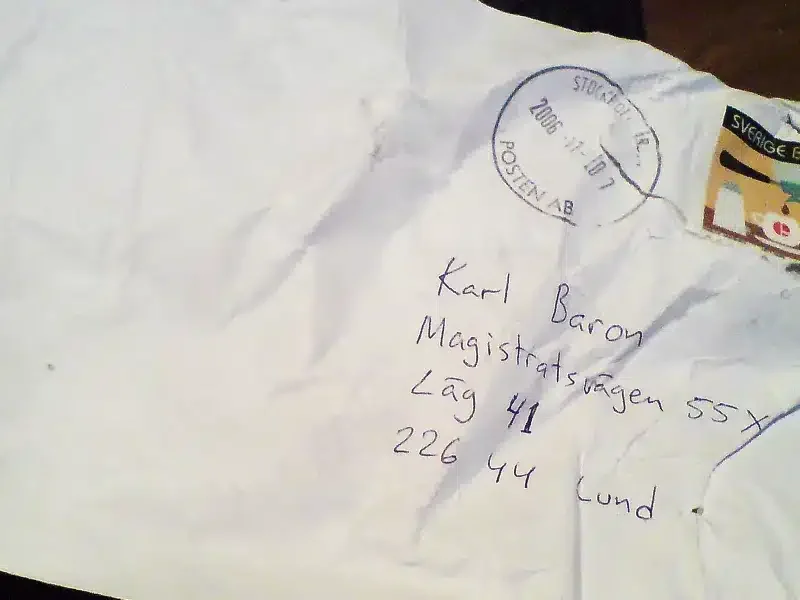 STOCKHOLM
2006 -11-10 7
POSTEN AB
SVERIGE
Karl Baron
Magistratsvägen 55X
Läg 41
226 44 Lund